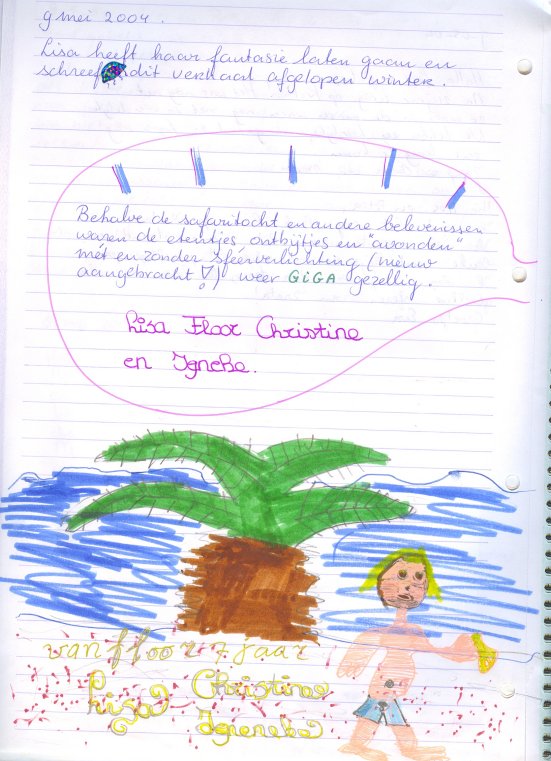 9 mei 2004.
Lisa heeft haar fantasie laten gaan en
schreef dit verhaal afgelopen winter.
Behalve de safaritocht en andere belevenissen
waren de etentjes, ontbijtjes en "avonden"
mét en zonder sfeerverlichting (nieuw
aangebracht!) weer GiGA gezellig.
Lisa Floor Christine
en
van floor 7 jaar
Lisa Christine